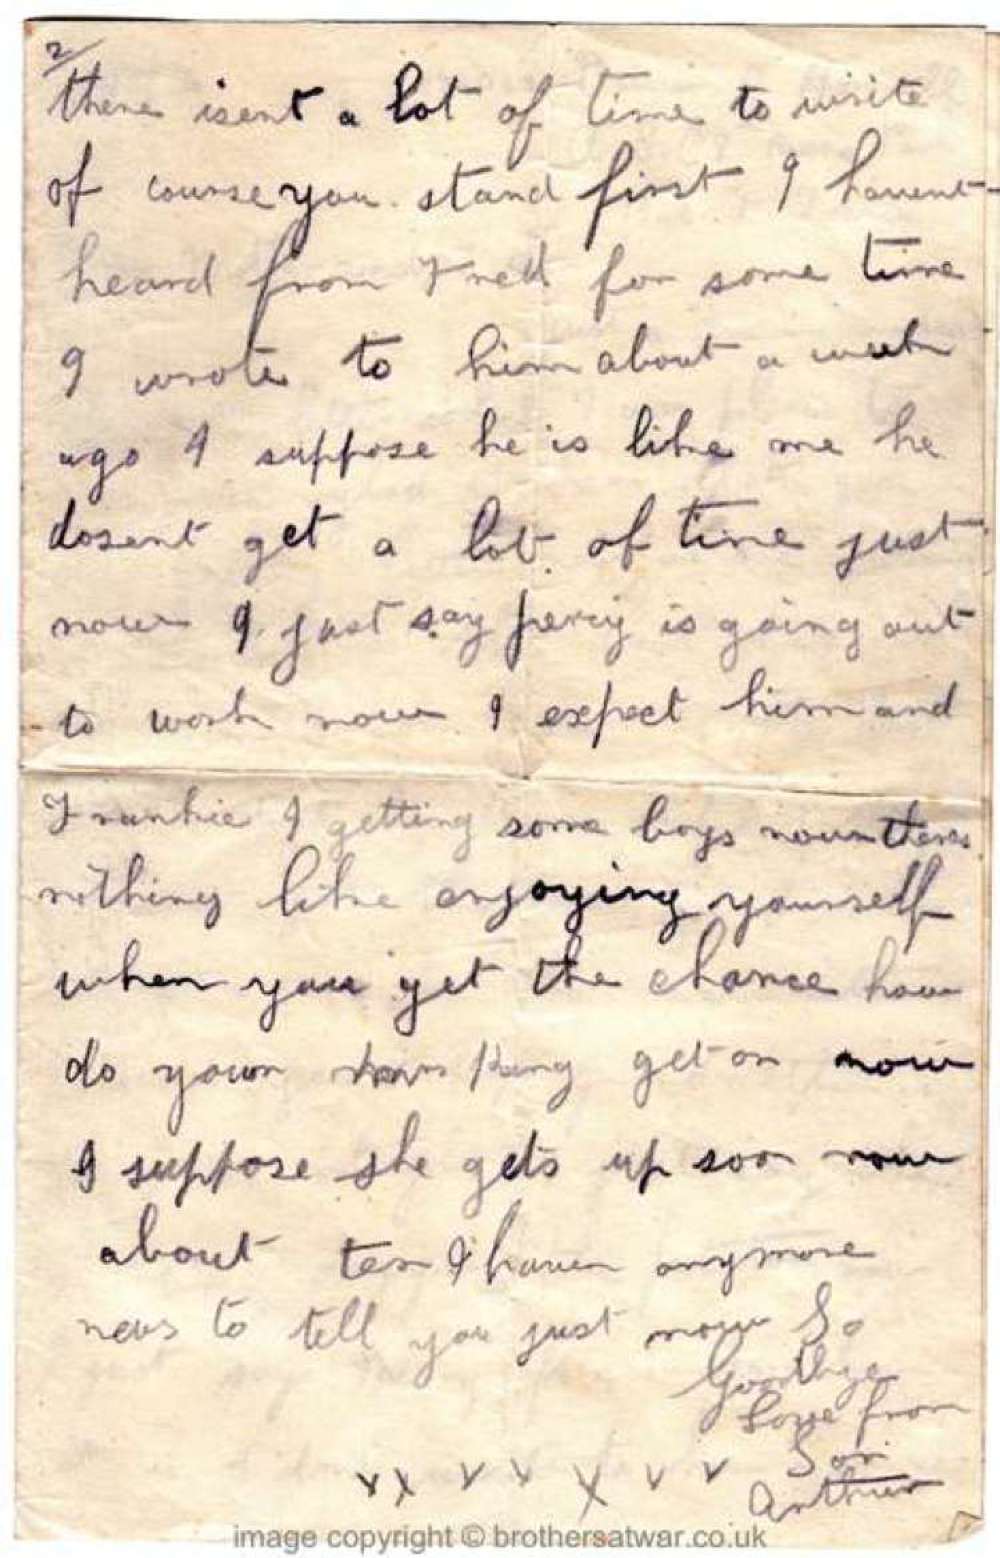 2/
there isent a lot of time to write
of course you stand first I havent
heard from Fred for some time
I wrote to him about a week
ago I suppose he is like me he
dosent get a lot of time just
now I just say percy is going out
to work now I expect him and
Frankie I getting some boys now theres
nothing like enjoying yourself
when you get the chance how
do your get on now
I suppose she gets up soon now
about ten I haven anymore
news to tell you just now So
Goodbye
Love from
Son
Arthur
xx v v x v v
image copyright © brothersatwar.co.uk